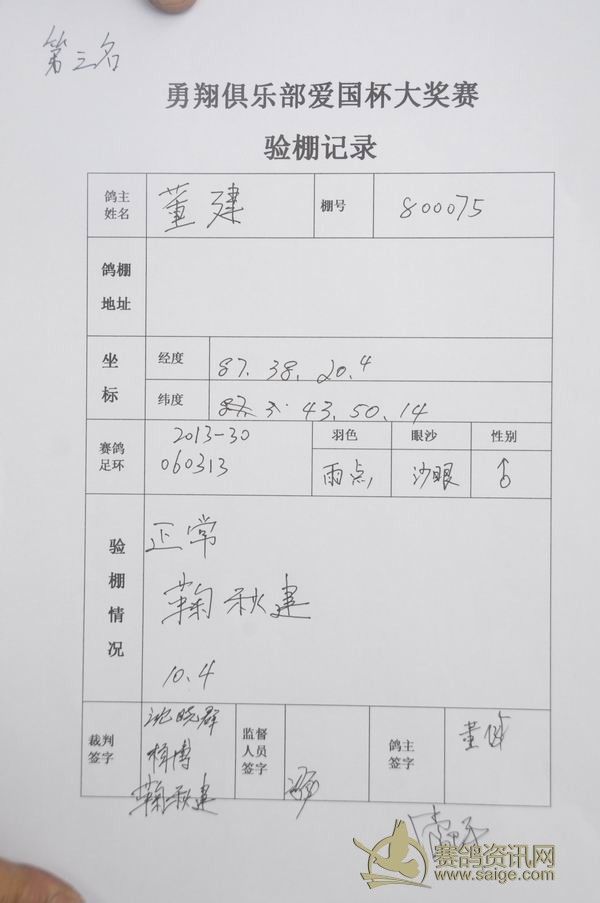 第三名
勇翔俱乐部爱国杯大奖赛
验棚记录
鸽主姓名 董建 棚号 800075
鸽棚地址
坐标 经度 87.38.20.4
纬度 43.50.14
赛鸽足环 2013-30 060313 羽色 眼沙 性别
雨点 沙眼 ♂
验棚情况 正常
鞠秋建
10.4
裁判签字 沈晓群 监督人员签字 鸽主签字 董建
鞠秋建
赛鸽资讯网
www.saige.com